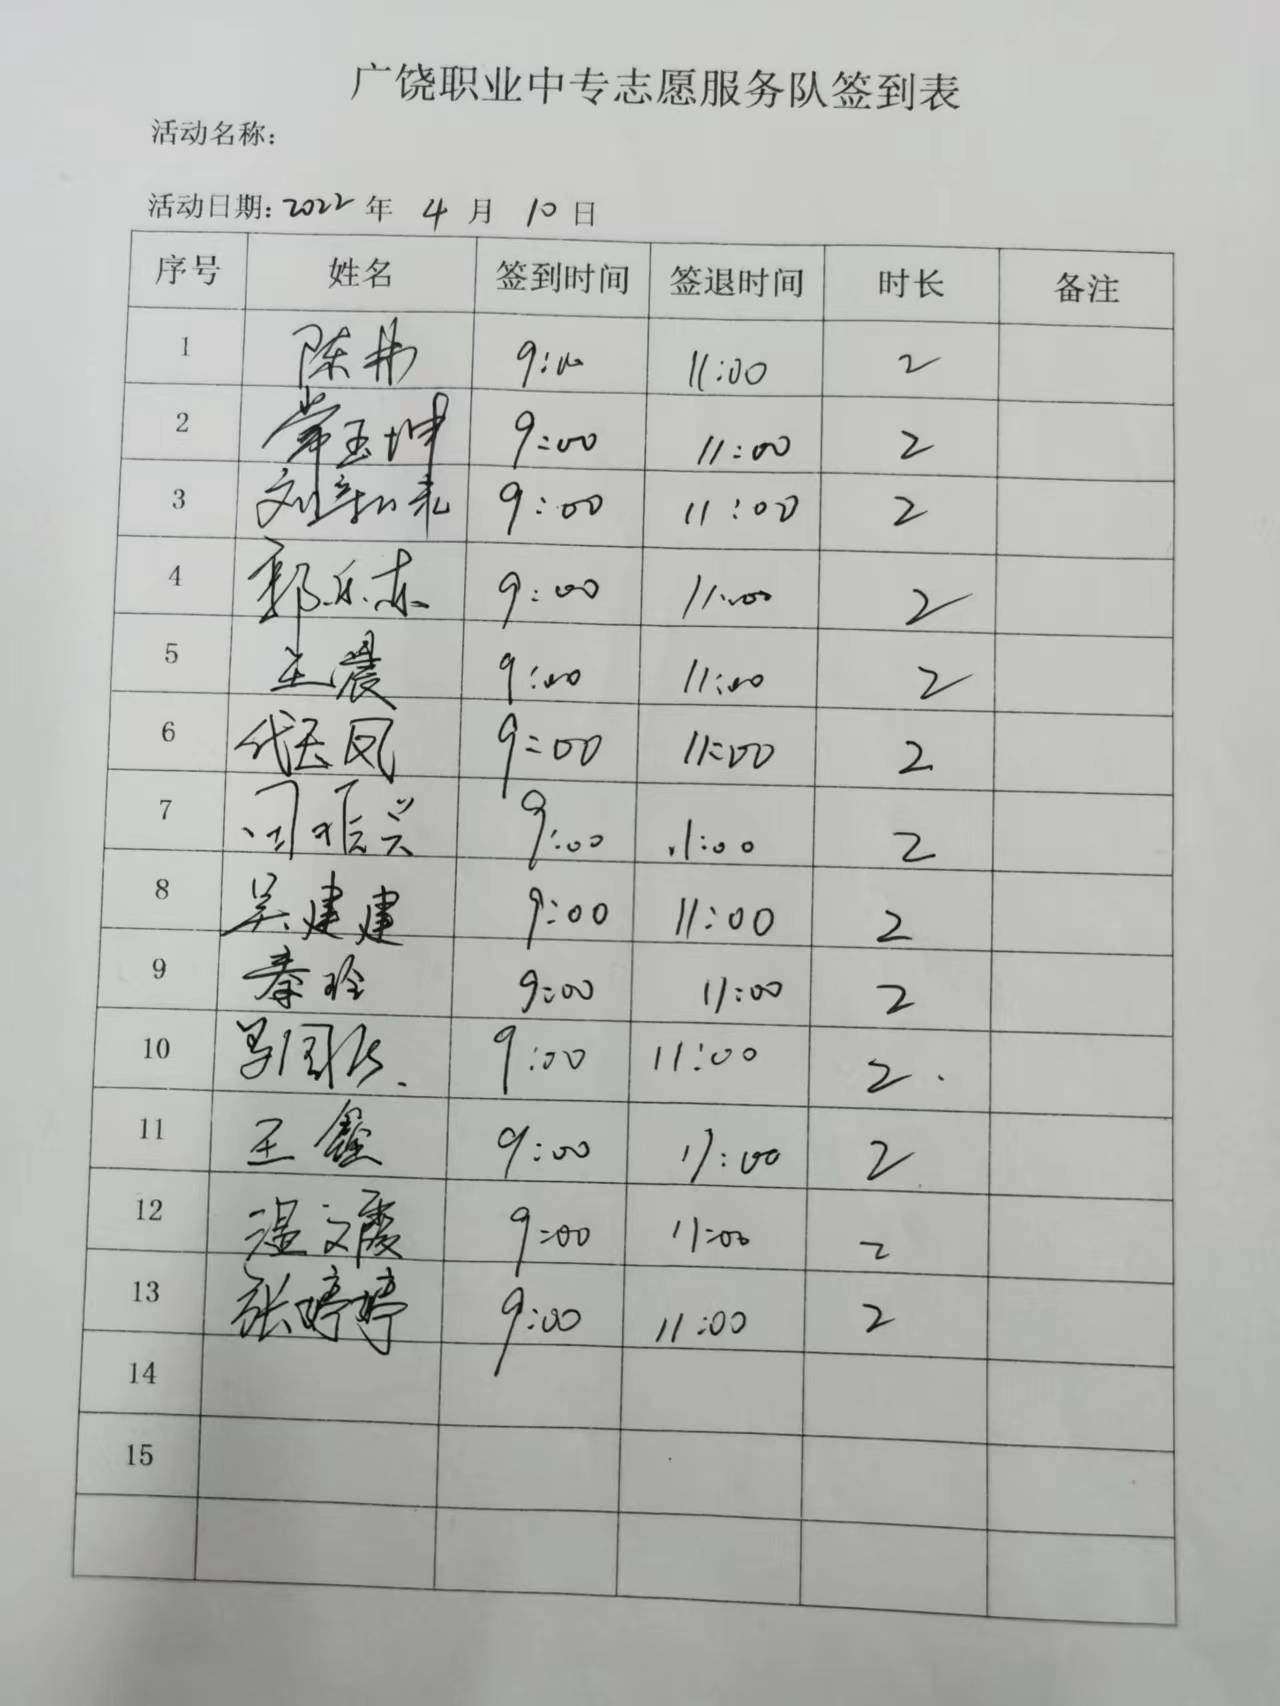 广饶职业中专志愿服务队签到表
活动名称：
活动日期：2022 年 4 月 10 日
序号 姓名 签到时间 签退时间 时长 备注
1 陈 9:00 11:00 2
2 常玉坤 9:00 11:00 2
3 刘 9:00 11:00 2
4 郭乐东 9:00 11:00 2
5 王晨 9:00 11:00 2
6 代天凤 9:00 11:00 2
7 闫振兴 9:00 11:00 2
8 吴建建 9:00 11:00 2
9 秦玲 9:00 11:00 2
10 9:00 11:00 2
11 王鑫 9:00 11:00 2
12 温文霞 9:00 11:00 2
13 张婷婷 9:00 11:00 2
14
15